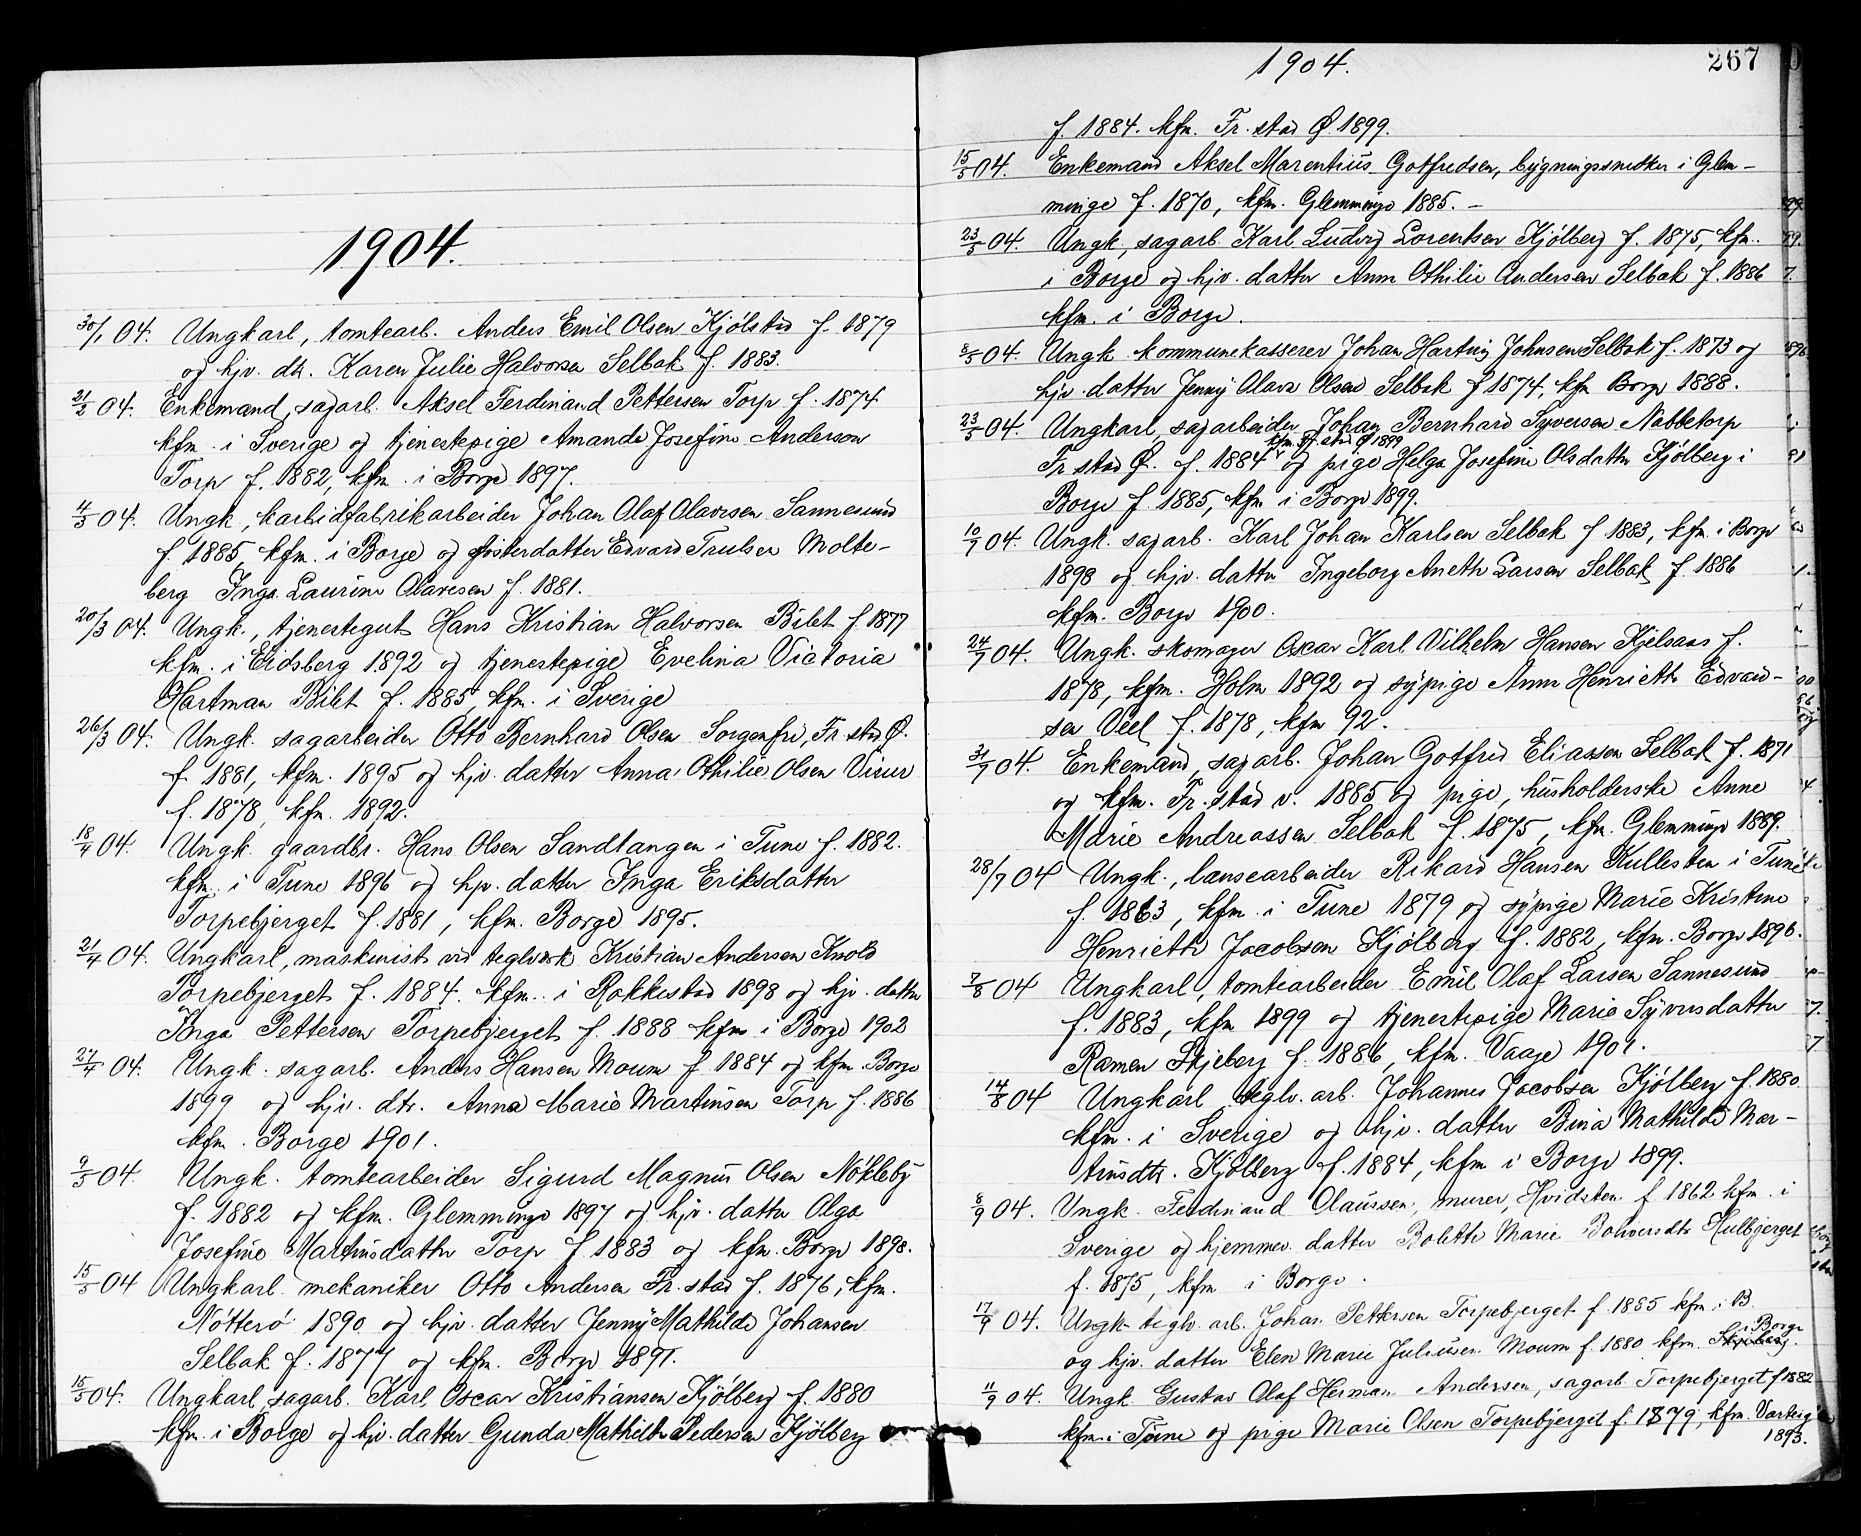 1904.
30/1 04. Ungkarl, tomtearb. Anders Emil Olsen Kjölstad f. 1879
og hjv. dtr. Karen Julie Halvorsen Selbak f. 1883.
21/2 04. Enkemand, sagarb. Aksel Ferdinand Pettersen Torp f. 1874
kfm. i Sverige og tjenestepige Amanda Josefine Anderson
Torp f. 1882, kfm. i Borge 1897.
4/3 04. Ungk., karbidfabrikarbeider Johan Olaf Olavesen Sannesund
f. 1885, kfm. i Borge og fosterdatter Edvard Trulsen Molte-
berg Inga Laurine Olavesen f. 1881.
20/3 04. Ungk., tjenestegut Hans Kristian Halvorsen Bilet f. 1877
kfm. i Eidsberg 1892 og tjenestepige Evelina Victoria
Hartman Bilet f. 1885, kfm. i Sverige
26/3 04. Ungk. sagarbeider Otto Bernhard Olsen Sorgenfri, Fr.stad Ø.
f. 1881, kfm. 1895 og hjv. datter Anna Othilie Olsen Viur
f. 1878, kfm. 1892.
18/4 04. Ungk. gaardbr. Hans Olsen Sandtangen i Tune f. 1882.
kfm. i Tune 1896 og hjv. datter Inga Eriksdatter
Torpebjerget f. 1881, kfm. Borge 1895.
21/4 04. Ungkarl, maskinist ved teglværk Kristian Andersen Knold
Torpebjerget f. 1884. kfm. i Rakkestad 1898 og hjv. datter
Inga Pettersen Torpebjerget f. 1888 kfm. i Borge 1902
27/4 04. Ungk. sagarb. Anders Hansen Moum f. 1884 og kfm. Borge
1899 og hjv. dtr. Anna Marie Martinsen Torp f. 1886
kfm. Borge 1901.
9/5 04. Ungk. tomtearbeider Sigurd Magnus Olsen Nökleby
f. 1882 og kfm. Glemminge 1897 og hjv. datter Olga
Josefine Martinsdatter Torp f. 1883 og kfm. Borge 1898.
15/5 04 Ungkarl. mekaniker Otto Andersen Fr.stad f. 1876, kfm.
Nötterö 1890 og hjv. datter Jenny Mathilde Johansen
Selbak f. 1877 og kfm. Borge 1891.
15/5 04. Ungkarl, sagarb. Karl Oscar Kristiansen Kjölberg f. 1880
kfm. i Borge og hjv. datter Gunda Mathilde Pedersen Kjölberg
1904.
267
f. 1884. kfm. Fr.stad Ø. 1899.
15/5 04. Enkemand Aksel Marentius Gotfredsen, bygningssnedker i Glem-
minge f. 1870, kfm. Glemminge 1885. -
23/5 04. Ungk., sagarb. Karl Ludvig Lorentsen Kjölberg f. 1875, kfm.
i Borge og hjv. datter Anna Othilie Andersen Selbak f. 1886
kfm. i Borge.
8/5 04. Ungk. kommunekasserer Johan Hartvig Johnsen Selbak f. 1873 og
hjv. datter Jenny Olava Olsen Selbak f. 1874, kfm. Borge 1888.
23/5 04. Ungkarl, sagarbeider Johan Bernhard Syversen Nabbetorp
kfm. Fr.stad Ø 1899
Fr.stad Ø. f. 1884 og pige Helga Josefine Olsdatter Kjölberg i
Borge f. 1885, kfm. i Borge 1899.
10/7 04. Ungk. sagarb. Karl Johan Karlsen Selbak f. 1883, kfm. i Borge
1898 og hjv. datter Ingeborg Anethe Larsen Selbak f. 1886
kfm. Borge 1900.
24/7 04. Ungk. skomager Oscar Karl Vilhelm Hansen Kjelsaas f.
1878, kfm. Holm 1892 og sypige Anna Henriette Edvard-
sen Veel f. 1878, kfm 92.
31/7 04. Enkemand, sagarb. Johan Gotfred Eliassen Selbak f. 1871
og kfm. Fr.stad v. 1885 og pige, husholderske Anne
Marie Andreassen Selbak f. 1875, kfm. Glemminge 1889.
28/7 04 Ungk., lænsearbeider Rikard Hansen Kullesten i Tune
f. 1863, kfm. i Tune 1879 og sypige Marie Kristine
Henriette Jacobsen Kjölberg f. 1882, kfm. Borge 1896.
7/8 04 Ungkarl, tomtearbeider Emil Olaf Larsen Sannesund
f. 1883, kfm 1899 og tjenestepige Marie Syversdatter
Ramen Skjeberg f. 1886, kfm. Vaage 1901.
14/8 04 Ungkarl teglv. arb. Johannes Jacobsen Kjölberg f. 1880
kfm. i Sverige og hjv. datter Bina Mathilde Mar-
tinsdtr. Kjölberg f. 1884, kfm i Borge 1899.
8/9 04. Ungk. Ferdinand Olaussen, murer, Hvidsten f 1862 kfm. i
Sverige og hjemmev. datter Bolette Marie Bolversdtr Hulbjerget
f. 1875, kfm i Borge.
17/9 04. Ungk. teglv. arb. Johan Pettersen Torpebjerget f. 1885 kfm. i B.
i Borge
og hjv. datter Elen Marie Juliusen Moum f. 1880 kfm. Skjeberg.
11/9 04. Ungk. Gustav Olaf Herman Andersen, sagarb. Torpebjerget f 1882
kfm. i Tune og pige Marie Olsen Torpebjerget f. 1879, kfm. Varteig
1893.